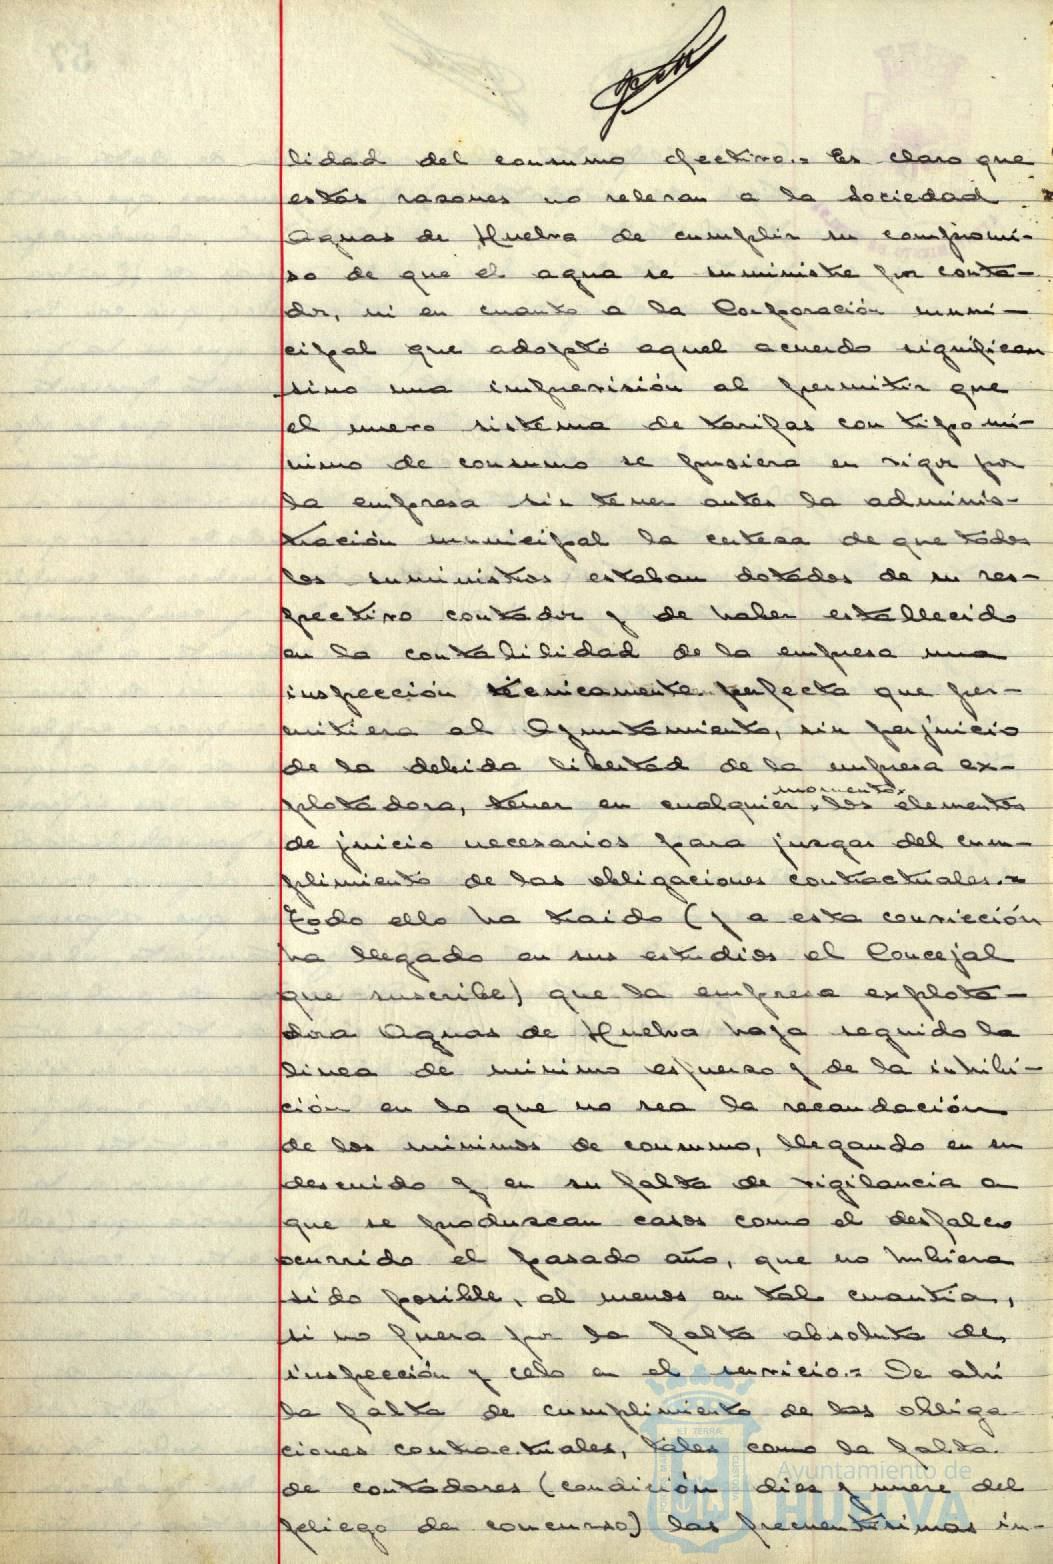 lidad del consumo efectivo.= Es claro que
estas razones no relevan a la Sociedad
Aguas de Huelva de cumplir su compromi-
so de que el agua se suministre por conta-
dor, ni en cuanto a la Corporación muni-
cipal que adoptó aquel acuerdo significan
sino una imprevisión al permitir que
el nuevo sistema de tarifas con tipo mí-
nimo de consumo se pusiera en vigor por
la empresa sin tener antes la adminis-
tración municipal la certeza de que todos
los suministros estaban dotados de su res-
pectivo contador y de haber establecido
en la contabilidad de la empresa una
inspección técnicamente perfecta que per-
mitiera al Ayuntamiento, sin perjuicio
de la debida libertad de la empresa ex-
momento
plotadora, tener en cualquier los elementos
de juicio necesarios para juzgar del cum-
plimiento de las obligaciones contractuales.=
Todo ello ha traido (y a esta convicción
ha llegado en sus estudios el Concejal
que suscribe) que la empresa explota-
dora Aguas de Huelva haya seguido la
línea de mínimo esfuerzo y de la inhibi-
ción en lo que no sea la recaudación
de los mínimos de consumo, llegando en su
descuido y en su falta de vigilancia a
que se produzcan casos como el desfalco
ocurrido el pasado año, que no hubiera
sido posible, al menos en tal cuantía,
si no fuera por la falta absoluta de
inspección y celo en el servicio.= De ahí
la falta de cumplimiento de las obliga-
ciones contractuales, tales como la falta
de contadores (condición diez y nueve del
pliego de concurso) las frecuentísimas in-
Ayuntamiento de
HUELVA